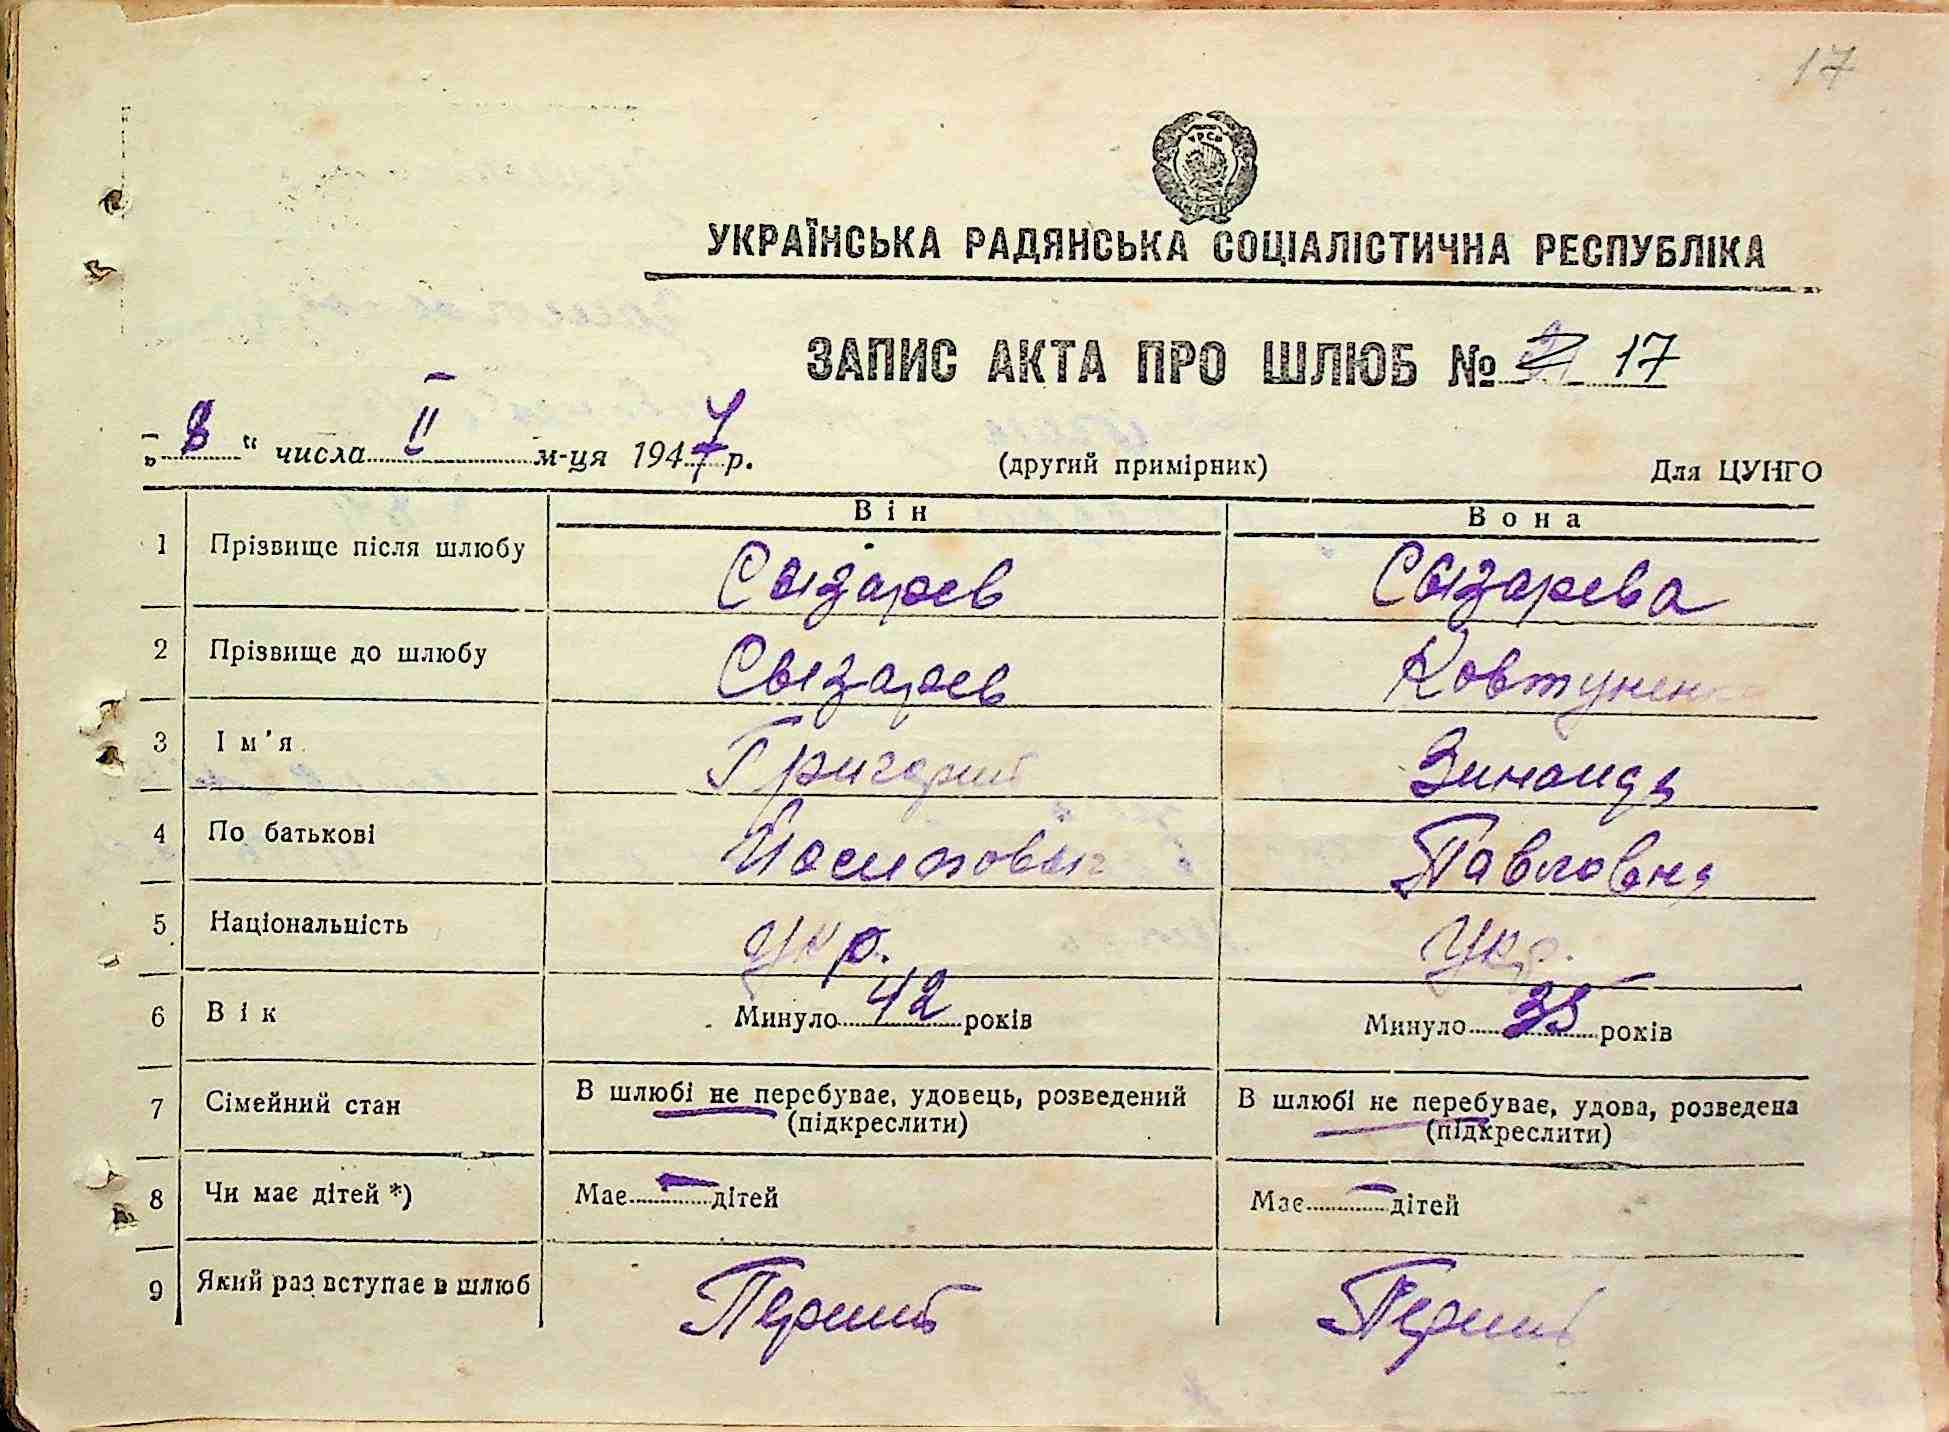 17
УКРАЇНСЬКА РАДЯНСЬКА СОЦІАЛІСТИЧНА РЕСПУБЛІКА
ЗАПИС АКТА ПРО ШЛЮБ № 17
„8“ числа II м-ця 1947 р. (другий примірник) Для ЦУНГО
Він Вона
1 Прізвище після шлюбу Сызарев Сызарева
2 Прізвище до шлюбу Сызарев Ковтуненко
3 Ім'я Григорий Зинаида
4 По батькові Иосипович Павловна
5 Національність укр. Укр.
6 Вік Минуло 42 років Минуло 35 років
7 Сімейний стан В шлюбі не перебуває, удовець, розведений (підкреслити) В шлюбі не перебуває, удова, розведена (підкреслити)
8 Чи має дітей *) Має — дітей Має — дітей
9 Який раз вступає в шлюб Перший Перший